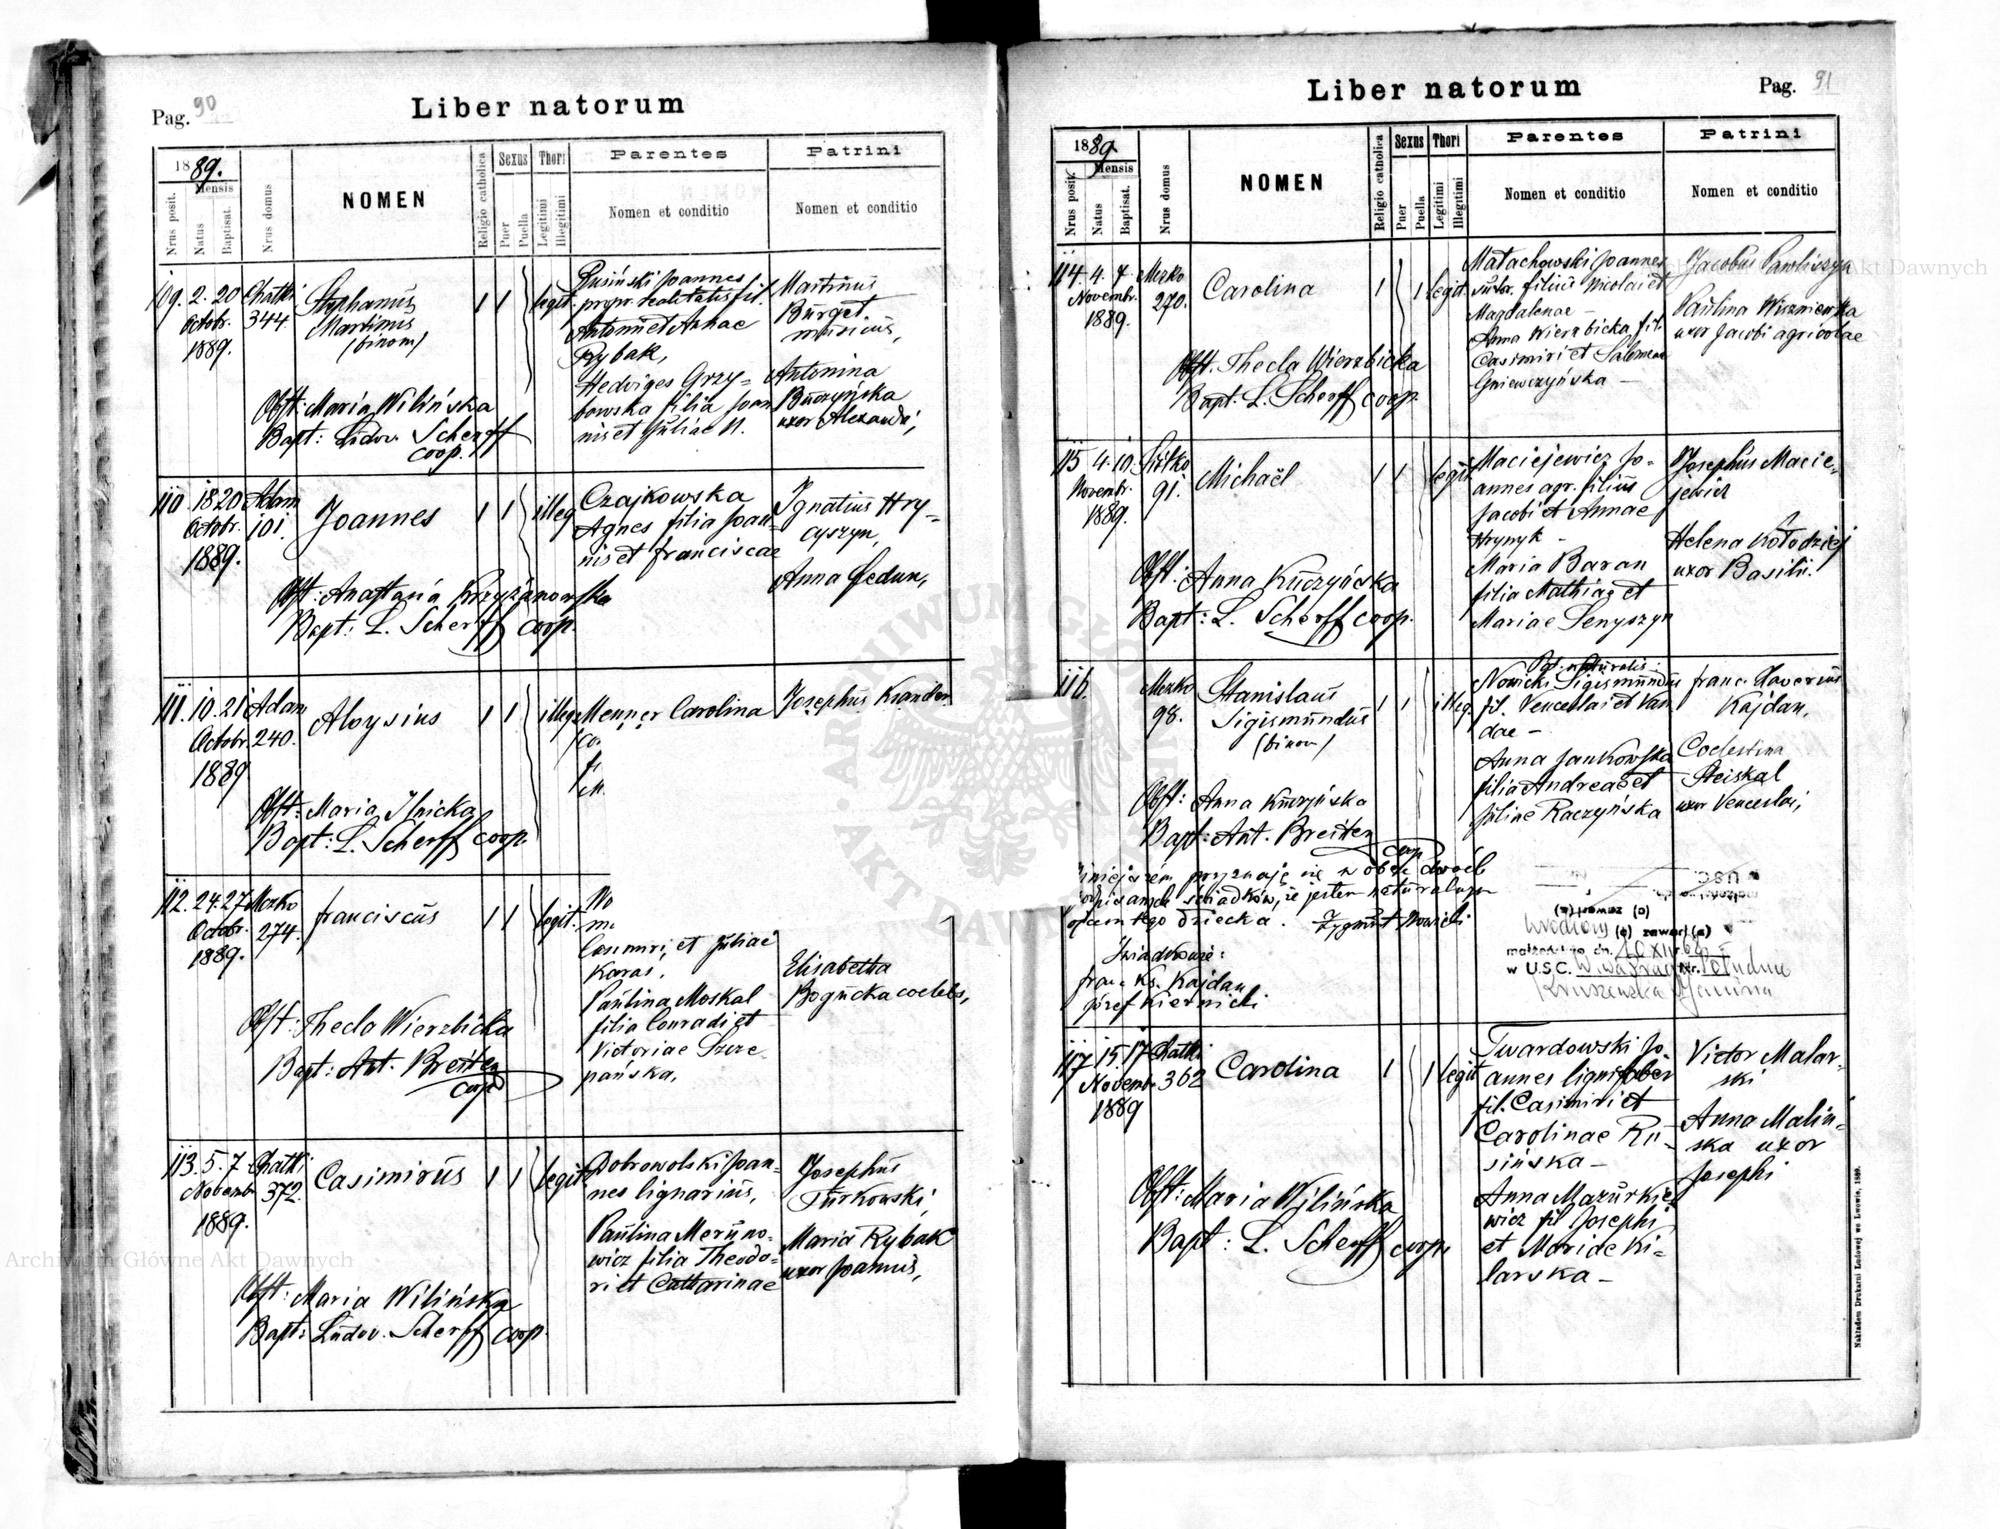 Pag. 90
Liber natorum
1889.
Mensis
Nrus posit.
Natus
Baptisat.
Nrus domus
NOMEN
Religio catholica
Sexus
Puer
Puella
Thori
Legitimi
Illegitimi
Parentes
Nomen et conditio
Patrini
Nomen et conditio
109. 2. 20
Octobr.
1889.
Chatki
344
Stephanus
Martinus
(binom)
1 1 legit.
Rusiński Joannes
propr. realitatis fil.
Antonii et Annae
Rybak,
Hedviges Grzy=
bowska filia Joan
nis et Juliae N.
Martinus
Burget
muricus,
Antonina
Buczyńska
uxor Alexandri,
Obst: Maria Wilińska
Bapt: Ludov. Scherff
coop.
110 18 20
Octobr.
1889.
Adam
101.
Joannes
1 1 illeg
Czajkowska
Agnes filia Joan=
nis et Franciscae
Ignatius Hry=
cyszyn,
Anna Fedun,
Obst: Anastasia Krzyżanowska
Bapt: L. Scherff coop.
111. 10. 21
Octobr.
1889
Adam
240.
Aloysius
1 1 illeg.
Menner Carolina
Josephus
Obst: Maria Ilnicka
Bapt: L. Scherff coop.
112. 24. 27
Octobr.
1889.
Mezko
274.
Franciscus
1 1 legit.
Casimiri, et Juliae
Karas,
Paulina Moskal
filia Conradi et
Victoriae Szcze-
pańska,
Elisabetha
Bogucka coelebs,
Obst: Thecla Wierzbicka
Bapt: Ant. Breiten
coop
113. 5. 7
Novemb
1889.
Chatki
372.
Casimirus
1 1 legit
Dobrowolski Joan=
nes lignarius,
Paulina Meruno-
wicz filia Theodo=
ri et Catharinae
Josephus
Turkowski,
Maria Rybak
uxor Joannis,
Obst: Maria Wilińska
Bapt: Ludov. Scherff coop.
Pag. 91
Liber natorum
1889
Mensis
Nrus posit.
Natus
Baptisat.
Nrus domus
NOMEN
Religio catholica
Sexus
Puer
Puella
Thori
Legitimi
Illegitimi
Parentes
Nomen et conditio
Patrini
Nomen et conditio
114. 4. 7
Novembr.
1889.
Mezko
270.
Carolina
1 1 legit
Małachowski Joannes
filius Nicolai et
Magdalenae -
Anna Wierzbicka fil.
Casimiri et Salomeae
Gniewczyńska -
Jacobus Pawliszyn
Paulina Wiszniewska
uxor Jacobi agricolae
Obst. Thecla Wierzbicka
Bapt: L. Scherff coop
115 4. 10.
Novembr.
1889.
91.
Michaël
1 1 legit
Maciejewicz Jo-
annes agr. filius
Jacobi et Annae
Hrynyk -
Maria Baran
filia Mathiae et
Mariae Senyszyn
Josephus Macie-
jewicz
Helena Kołodziej
uxor Basilii.
Obst: Anna Kuczyńska
Bapt: L. Scherff coop.
116.
Mezko
98.
Stanislaus
Sigismundus
(binom)
1 1 illeg.
Pat. naturalis
Nowicki Sigismundus
fil. Venceslai et Van
dae -
Anna Jankowska
filia Andreae et
Juliae Raczyńska
Franc. Xaverius
Kajdan,
Coelestina
Steiskal
uxor Venceslai,
Obst: Anna Kuczyńska
Bapt: Ant. Breiten
coop
Niniejszem przyznaję się w obec dwóch
podpisanych świadków, że jestem naturalnym
ojcem tego dziecka. Zygmunt Nowicki
Świadkowie:
Franc. Ks. Kajdan
Józef Kiernicki
(e) zawarł (a)
małżeństwo dn. 10 XII
w U.S.C. Warszawa Południe
Kruszewska Janina
117 15. 17
Novemb
1889
Chatki
362
Carolina
1 1 legit
Twardowski Jo-
annes lignifaber
fil. Casimiri et
Carolinae Ru-
sińska -
Anna Mazurkie
wicz fil Josephi
et Mariae Ki-
larska -
Victor Malar-
ski
Anna Malin-
ska uxor
Josephi
Obst: Maria Wilińska
Bapt: L. Scherff coop.
Nakładem Drukarni Ludowej we Lwowie, 1889.
ARCHIWUM GŁÓWNE AKT DAWNYCH
Archiwum Główne Akt Dawnych
Archiwum Główne Akt Dawnych